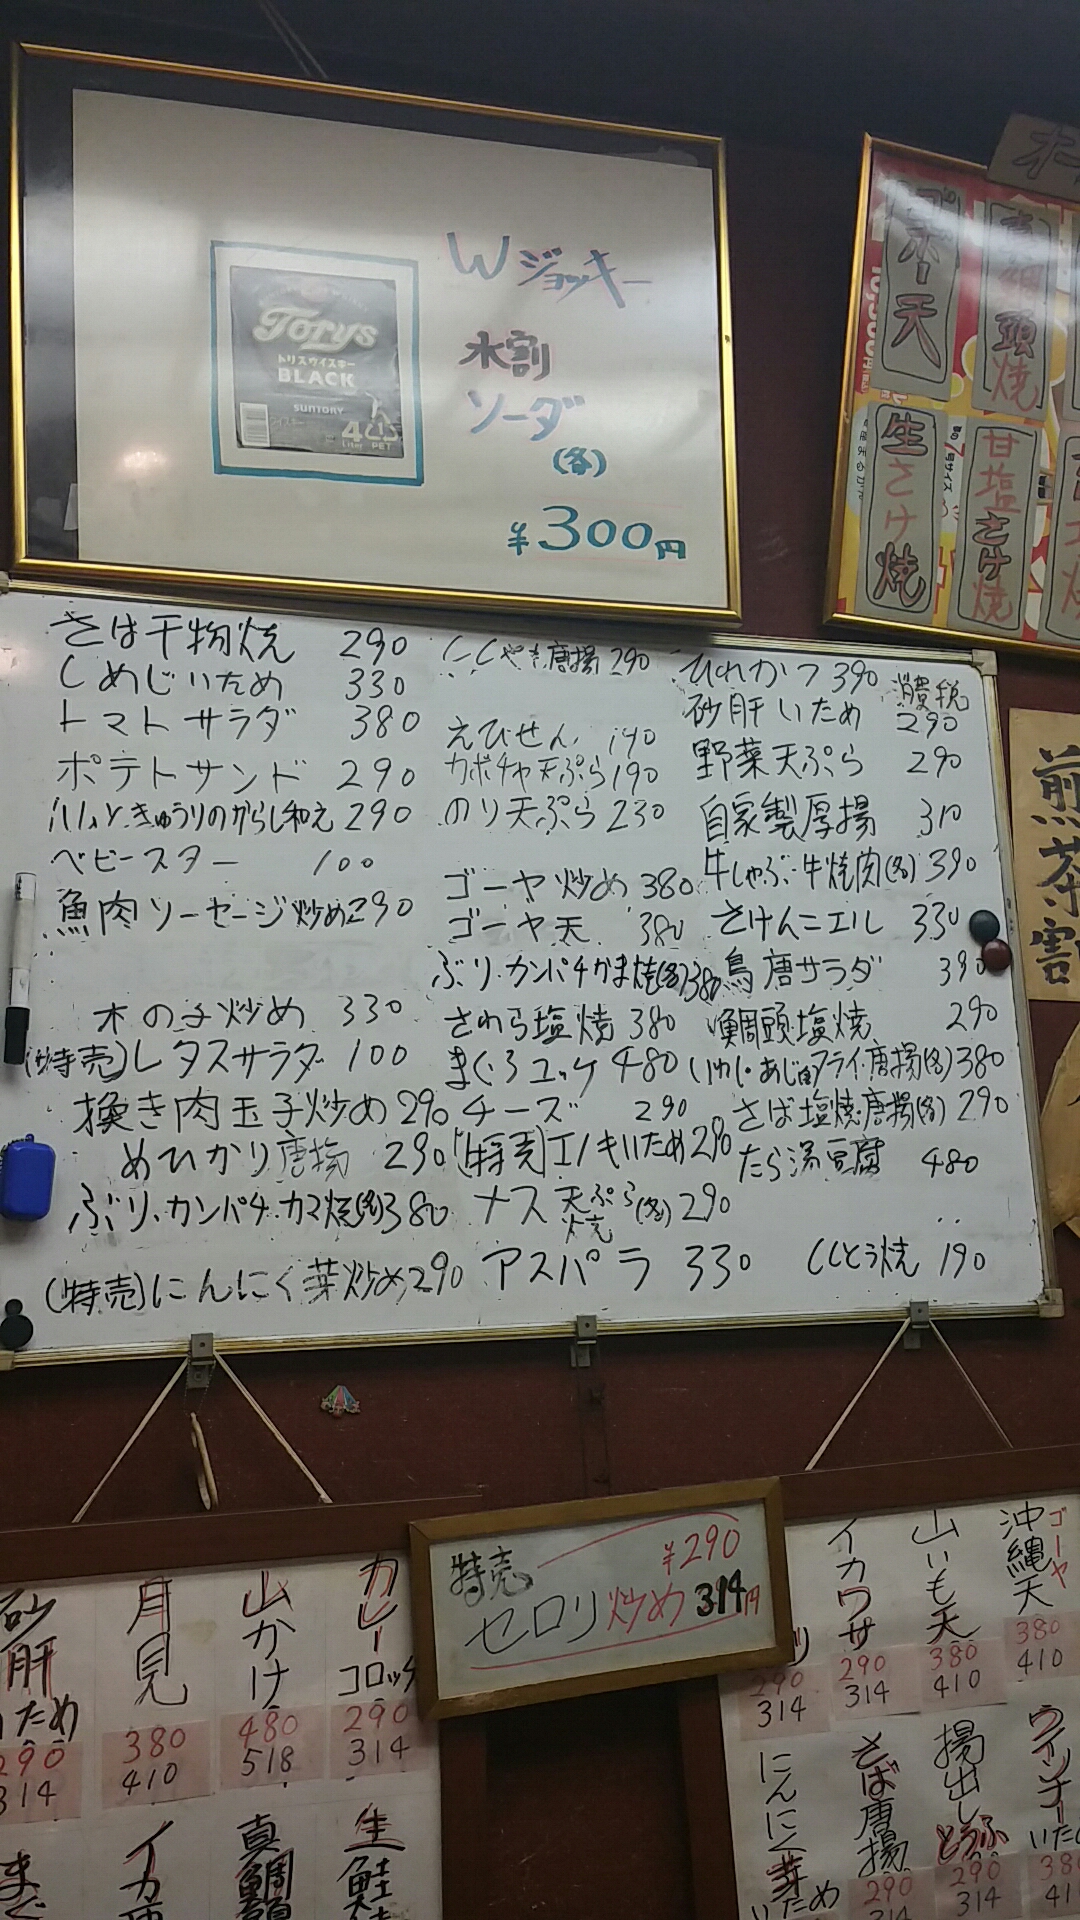 Wジョッキー
水割
ソーダ
(各)
¥300円
Torys
トリスウイスキー
BLACK
SUNTORY
4
Liter PET
天
頭焼
生さけ焼
甘塩さけ焼
7号サイズ
さば干物焼 290
しめじいため 330
トマトサラダ 380
ポテトサンド 290
ハムときゅうりのからし和え 290
ベビースター 100
魚肉ソーセージ炒め 290
木の子炒め 330
(特売)レタスサラダ 100
挽き肉玉子炒め 290
めひかり唐揚 290
ぶり・カンパチ・カマ焼(各)380
(特売)にんにく葉炒め 290
唐揚 290
えびせん 190
カボチャ天ぷら 190
のり天ぷら 230
ゴーヤ炒め 380
ゴーヤ天 380
ぶり・カンパチかま焼(各)380
さわら塩焼 380
まぐろユッケ 480
チーズ 290
(特売)エノキいため 290
ナス 天ぷら 焼 (各) 290
アスパラ 330
ひれかつ 390
消費税
砂肝いため 290
野菜天ぷら 290
自家製厚揚 310
牛しゃぶ・牛焼肉(各) 390
330
鳥唐サラダ 390
鯛頭塩焼 290
いわし・あじ フライ・唐揚(各)380
さば塩焼・唐揚(各) 290
たら湯豆腐 480
ししとう焼 190
煎茶割
特売
¥290
セロリ炒め 314円
砂肝いため
290
314
月見
380
410
山かけ
480
518
カレーコロッケ
290
314
まぐ
イカ
真鯛頭
生鮭
290
314
イカワサ
290
314
山いも天
380
410
沖縄天
ゴーヤ
380
410
にんにく芽いため
さば唐揚
290
314
揚出しとうふ
290
314
ウインナーいため
38
41